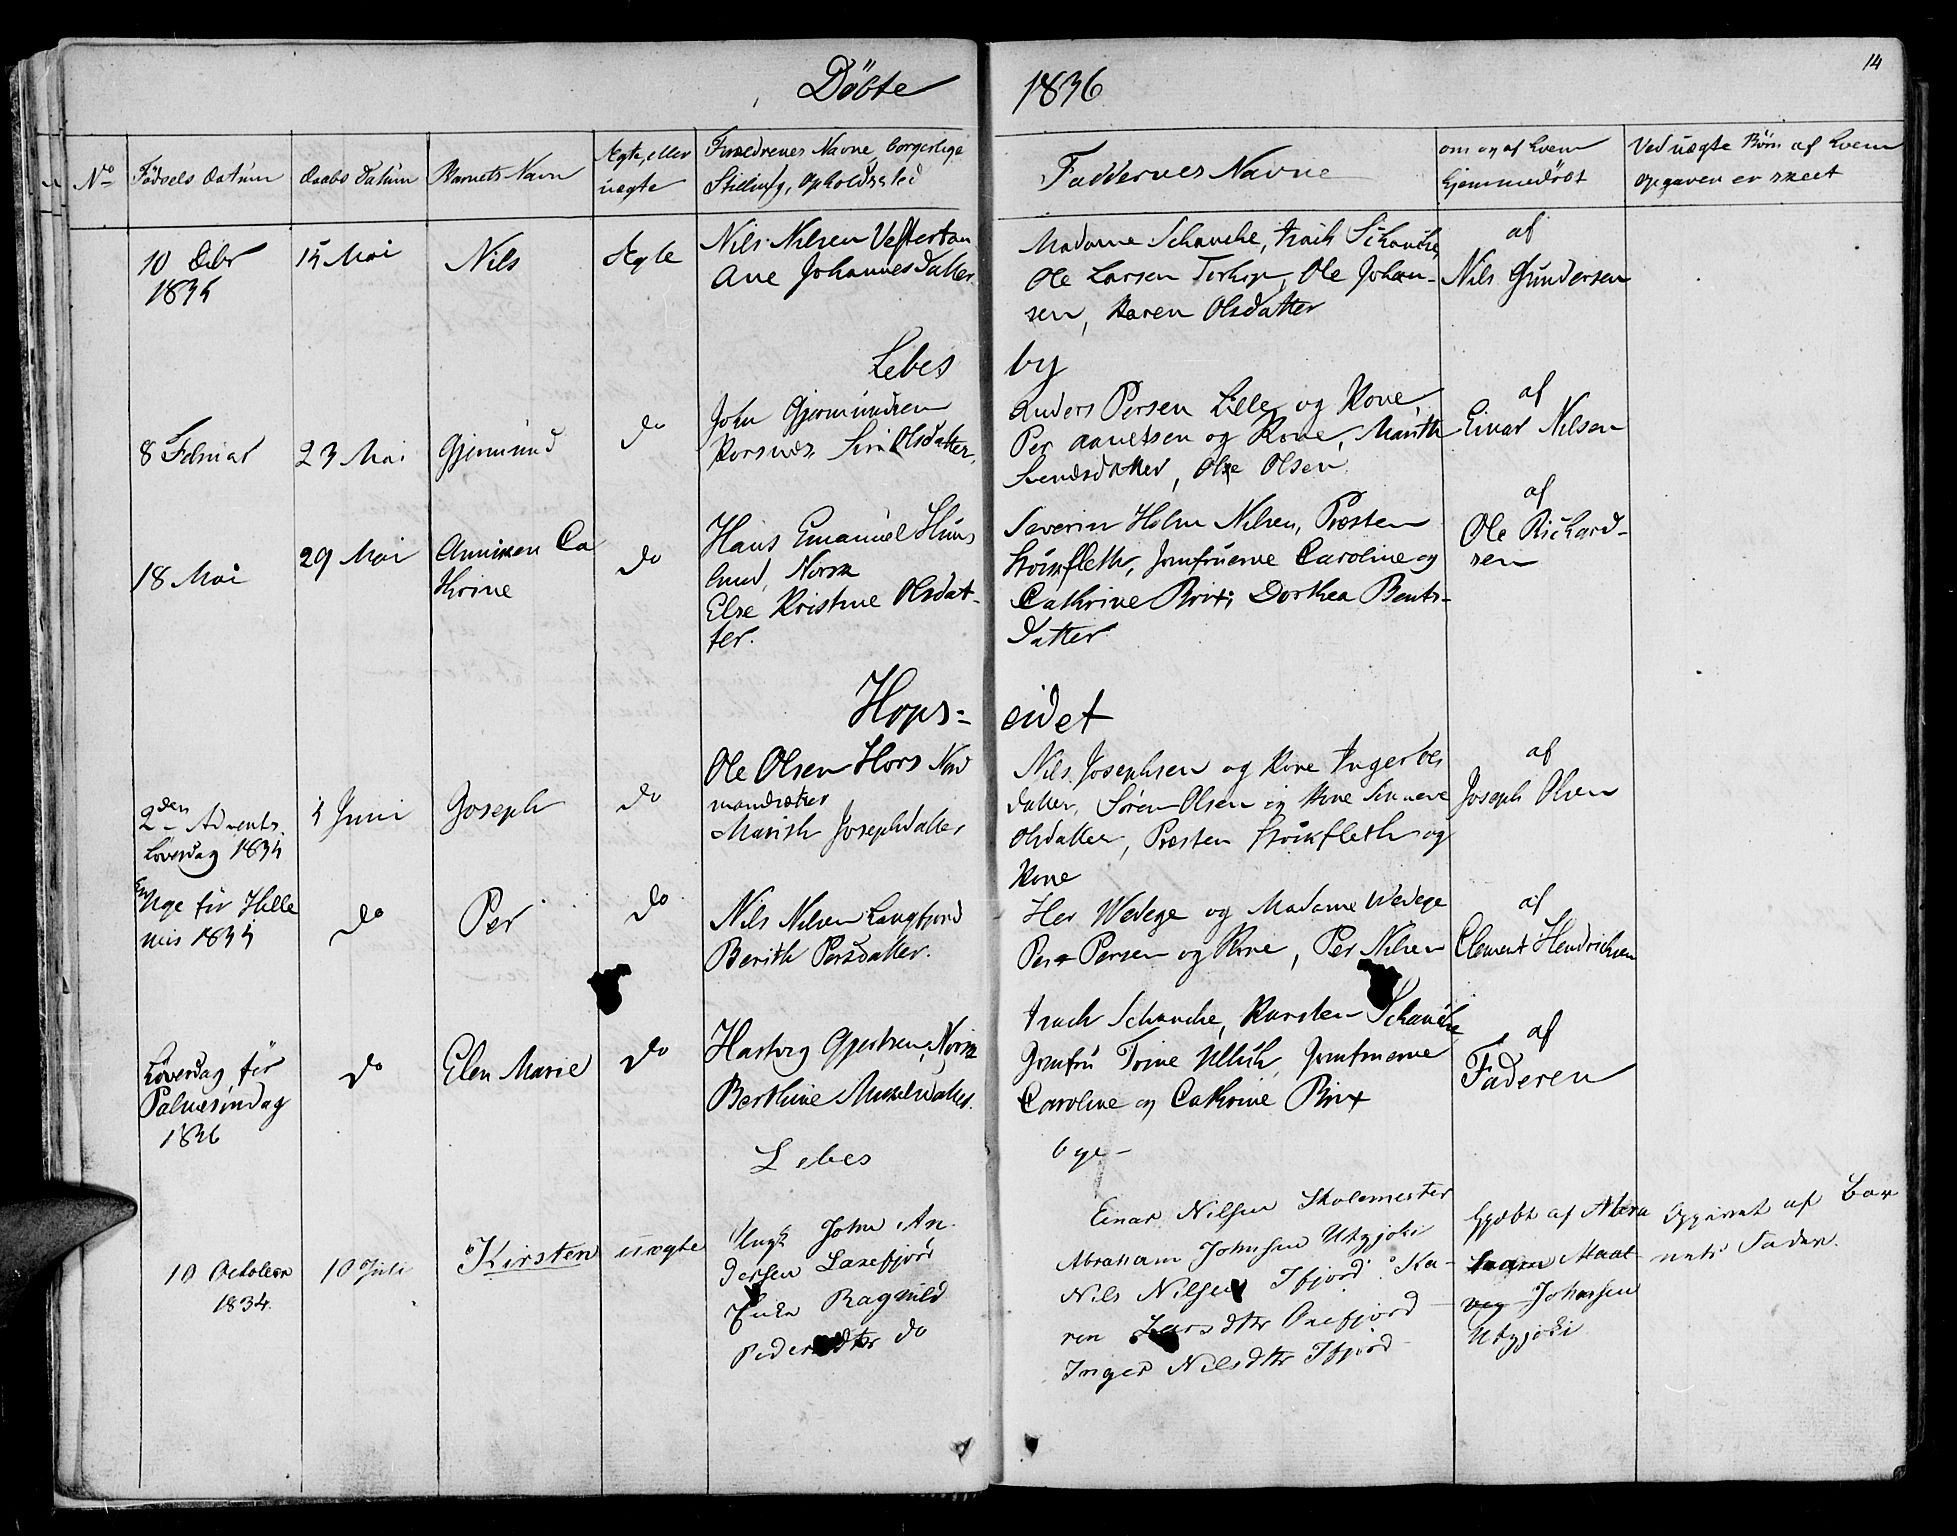 14
Döbte 1836
No Fødsels Datum Daabs Datum Barnets Navn Ægte eller uægte Forældrenes Navne, borgerlige Stilling, Opholdssted Faddernes Navne om og af hvem hjemmedöbt Ved uægte Börn af hvem opgaven er skeet
10 Debr
1835
15 Mai
Nils
Ægte
Nils Nilsen Vestertan
Ane Johannesdatter
Madame Schanche, Isach Schanche,
Ole Larsen Torhop, Ole Johan-
sen, Karen Olsdatter
af
Nils Gundersen
Lebes by
8 Februar
23 Mai
Gjermund
do
John Gjermundsen
Korsnes Siri Olsdatter
Anders Persen Lille og Kone,
Per og Kone, Marith
Svendsdatter, Ole Olsen
af
Einar Nilsen
18 Mai
29 Mai
Anniken Ca
thrine
do
Hans Emanuel
Norsk
Else Kristine Olsdat-
ter.
Severin Holm Nilsen, Præsten
Stöckfleth, Jomfruerne Caroline og
Cathrine Brix, Dorthea Bents-
datter
af
Ole Richard-
sen
Hops= eidet
2den Advents
Löverdag 1834
4 Juni
Joseph
do
Ole Olsen Hors
Marith Josephdatter
Nils Josephsen og Kone
datter, Sören Olsen og Kone
Olsdatter, Præsten Stöckfleth og
Kone
af
Joseph Olsen
En Uge för Helle
mis 1835
do
Per
do
Nils Nilsen Langfjord
Berith Persdatter.
Her Wedege og Madame Wedege
Per Persen og Kone, Per Nilsen
af
Clement Hendrichsen
Löverdag för
Palmesöndag
1836
do
Elen Marie
do
Hartvig Gjertsen, Norsk
Berthine Mikkelsdatter.
Isach Schanche, Karsten Schanche,
Jomfru Trine Ulich, Jomfruerne
Caroline og Cathrine Brix
af
Faderen
Lebes bye-
10 October
1834.
10 Juli
Kirsten
uægte
Ungk John An-
dersen Laxefjord
Enke Ragnild
Pedersdtr do
Einar Nilsen Skolemester
Abraham Johnsen Utsjoki
Nils Nilsen Ifjord. Ka-
ren Larsdtr
Inger Nilsdtr Ifjord
hjdöbt af Abra
ham
Johnsen
Utsjoki
Opgivet af Bar
nets Fader.